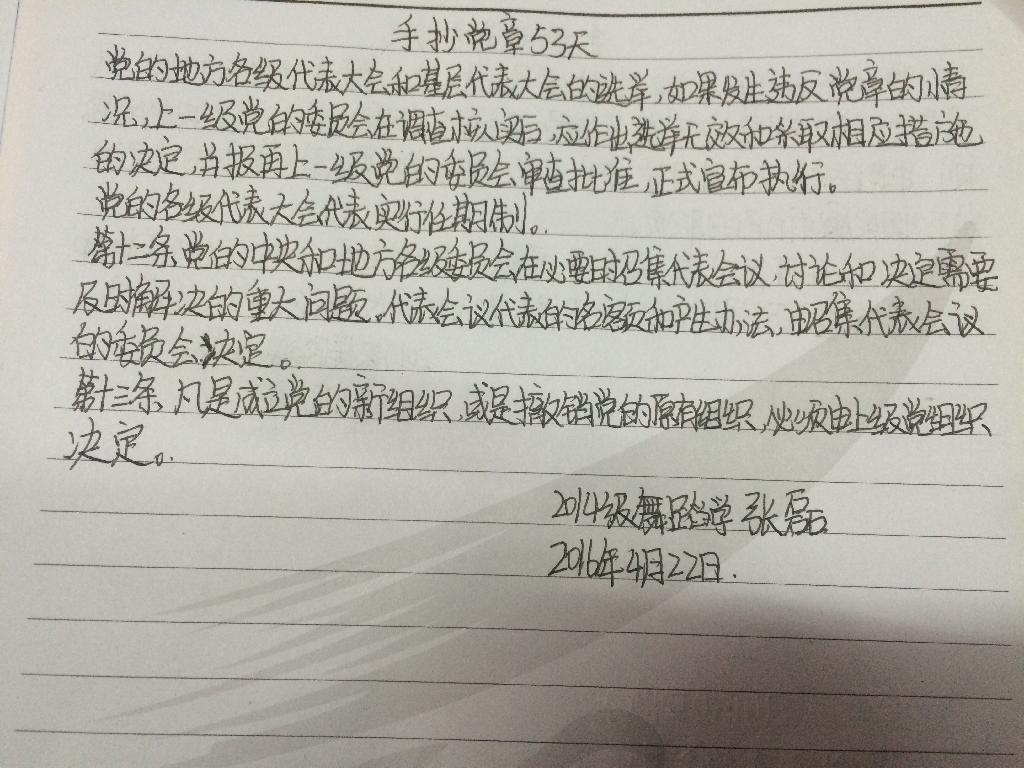 手抄党章53天
党的地方各级代表大会和基层代表大会的选举,如果发生违反党章的情
况,上一级党的委员会在调查核实后,应作出选举无效和采取相应措施
的决定,并报再上一级党的委员会审查批准,正式宣布执行。
党的各级代表大会代表实行任期制。
第十二条 党的中央和地方各级委员会在必要时召集代表会议,讨论和决定需要
及时解决的重大问题。代表会议代表的名额和产生办法,由召集代表会议
的委员会决定。
第十三条 凡是成立党的新组织,或是撤销党的原有组织,必须由上级党组织
决定。
2014级舞蹈学 张磊
2016年4月22日.